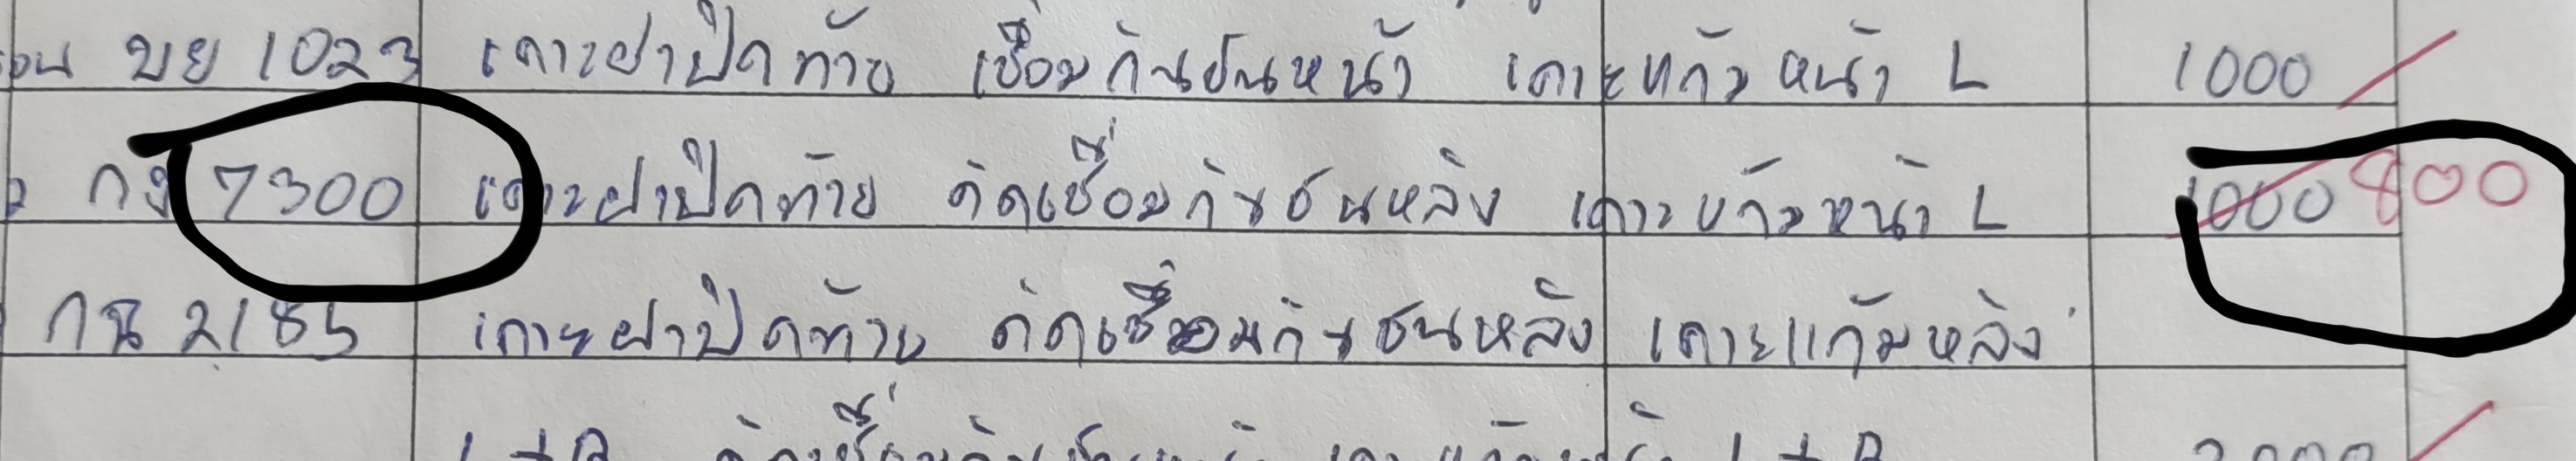 ขย 1023 เคาะฝาปิดท้าย เชื่อมกันชนหน้า เคาะแก้มหน้า L 1000
กง 7300 เคาะฝาปิดท้าย ดัดเชื่อมกันชนหลัง เคาะแก้มหน้า L 1000 800
กฉ 2185 เคาะฝาปิดท้าย ดัดเชื่อมกันชนหลัง เคาะแก้มหลัง